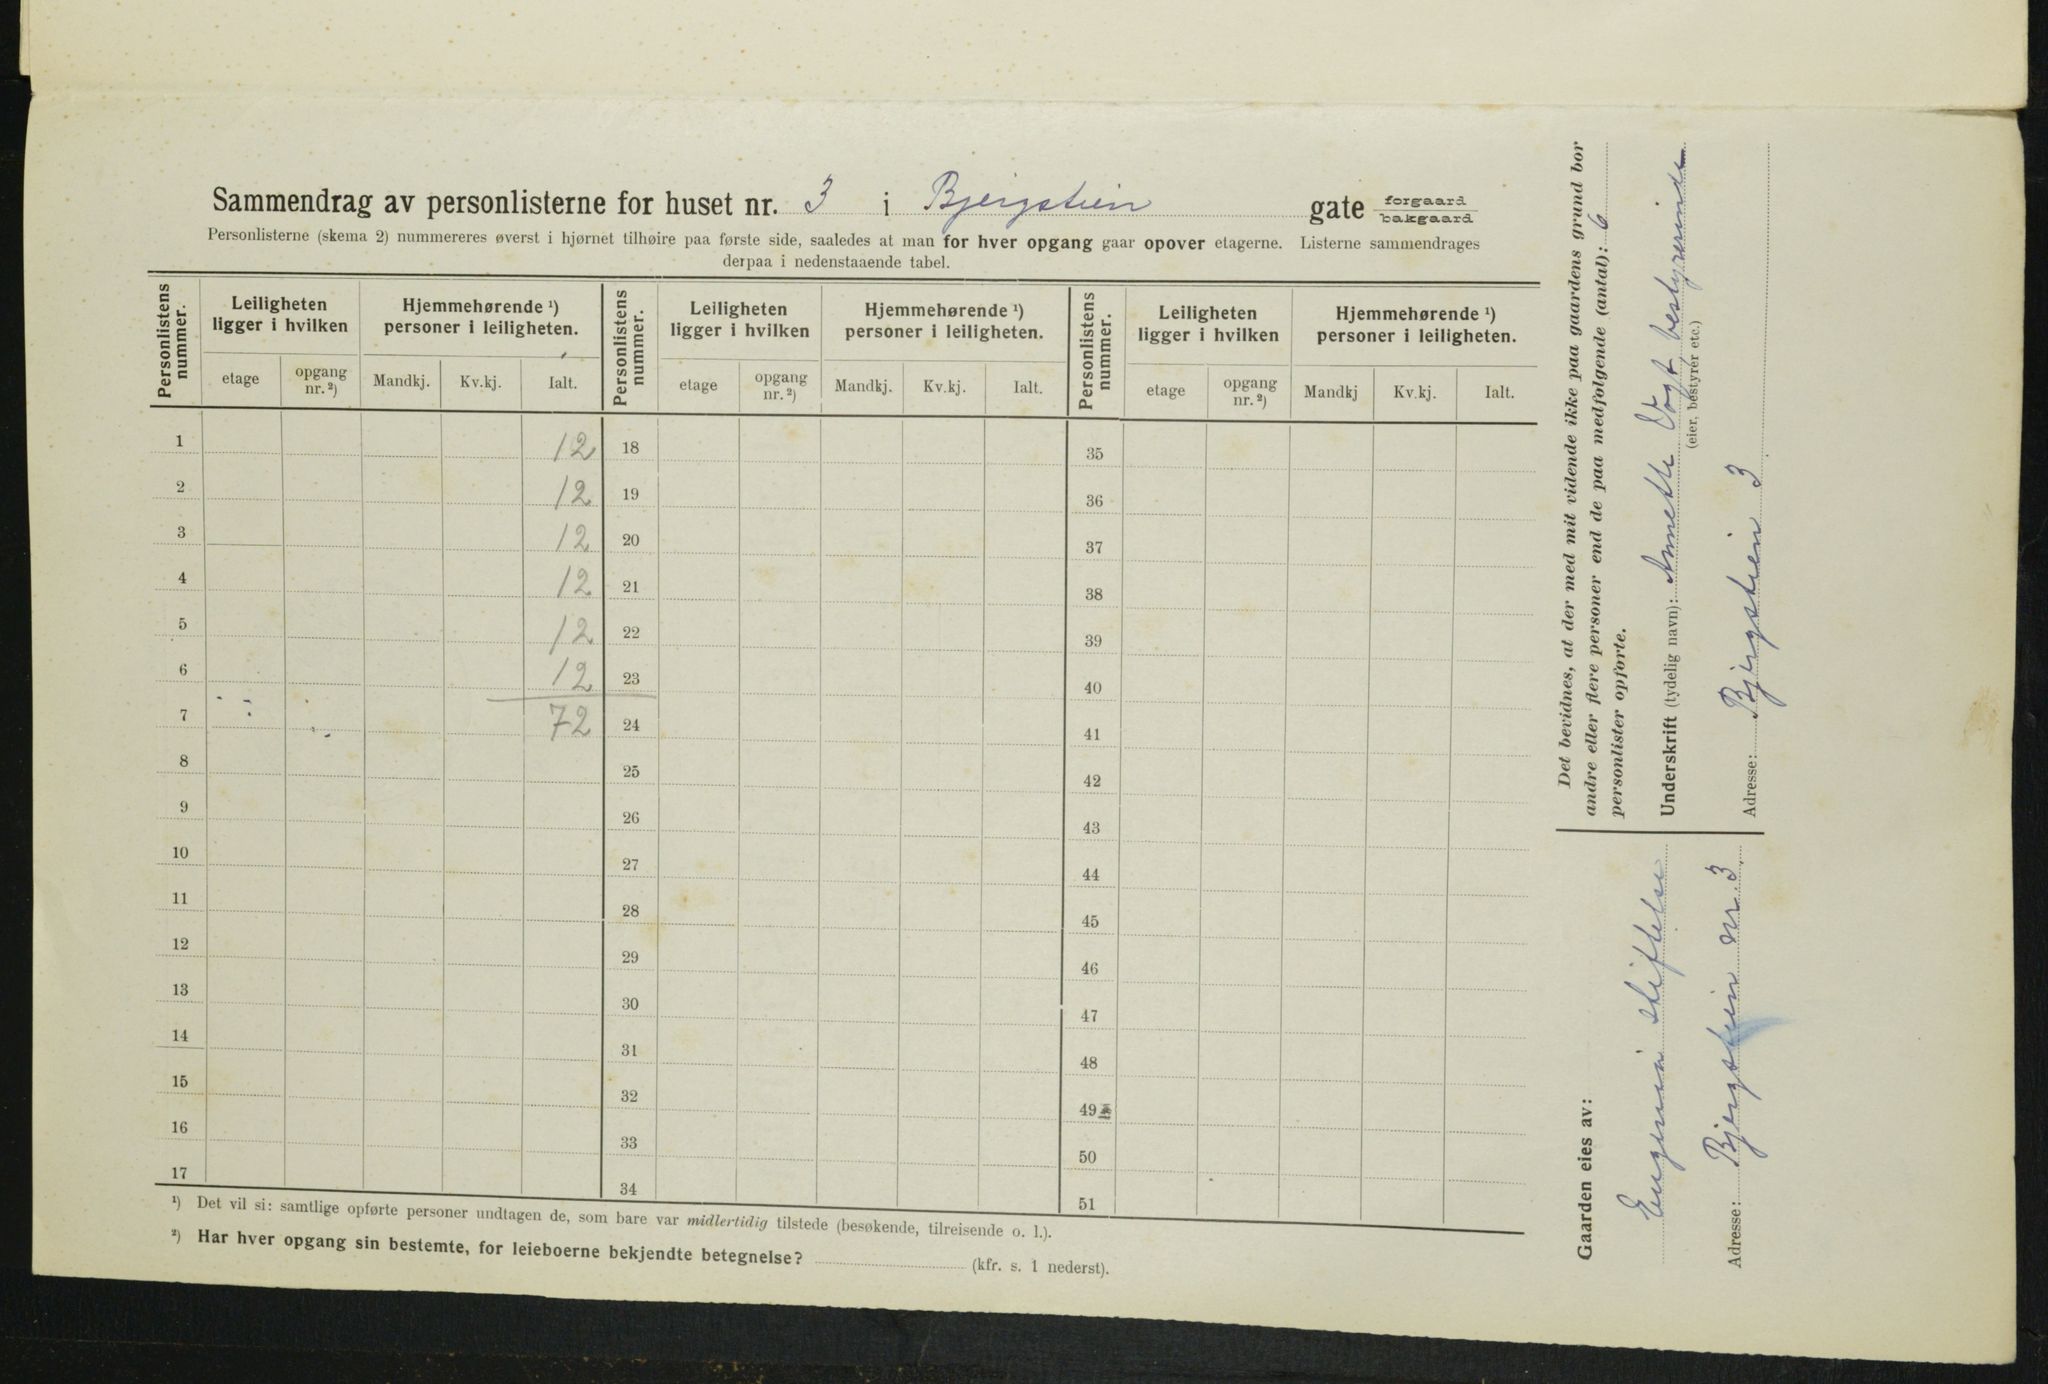 Sammendrag av personlisterne for huset nr. 3 i Bjergstien gate forgaard bakgaard
Personlisterne (skema 2) nummereres øverst i hjørnet tilhøire paa første side, saaledes at man for hver opgang gaar opover etagerne. Listerne sammendrages
derpaa i nedenstaaende tabel.
Personlistens nummer. Leiligheten ligger i hvilken Hjemmehørende ¹) personer i leiligheten. Personlistens nummer. Leiligheten ligger i hvilken Hjemmehørende ¹) personer i leiligheten. Personlistens nummer. Leiligheten ligger i hvilken Hjemmehørende ¹) personer i leiligheten.
etage opgang nr. ²) Mandkj. Kv.kj. Ialt. etage opgang nr. ²) Mandkj. Kv.kj. Ialt. etage opgang nr. ²) Mandkj Kv.kj. Ialt.
1 12 18 35
2 12 19 36
3 12 20 37
4 12 21 38
5 12 22 39
6 12 23 40
7 72 24 41
8 25 42
9 26 43
10 27 44
11 28 45
12 29 46
13 30 47
14 31 48
15 32 49
16 33 50
17 34 51
¹) Det vil si: samtlige opførte personer undtagen de, som bare var midlertidig tilstede (besøkende, tilreisende o. l.).
²) Har hver opgang sin bestemte, for leieboerne bekjendte betegnelse? (kfr. s. 1 nederst).
Det bevidnes, at der med mit vidende ikke paa gaardens grund bor
andre eller flere personer end de paa medfølgende (antal): 6
personlister opførte.
Underskrift (tydelig navn): Annette Vogt, bestyrerinde
(eier, bestyrer etc.)
Adresse: Bjergstien 3
Gaarden eies av:
Eugenia stiftelse
Adresse: Bjergstien nr. 3